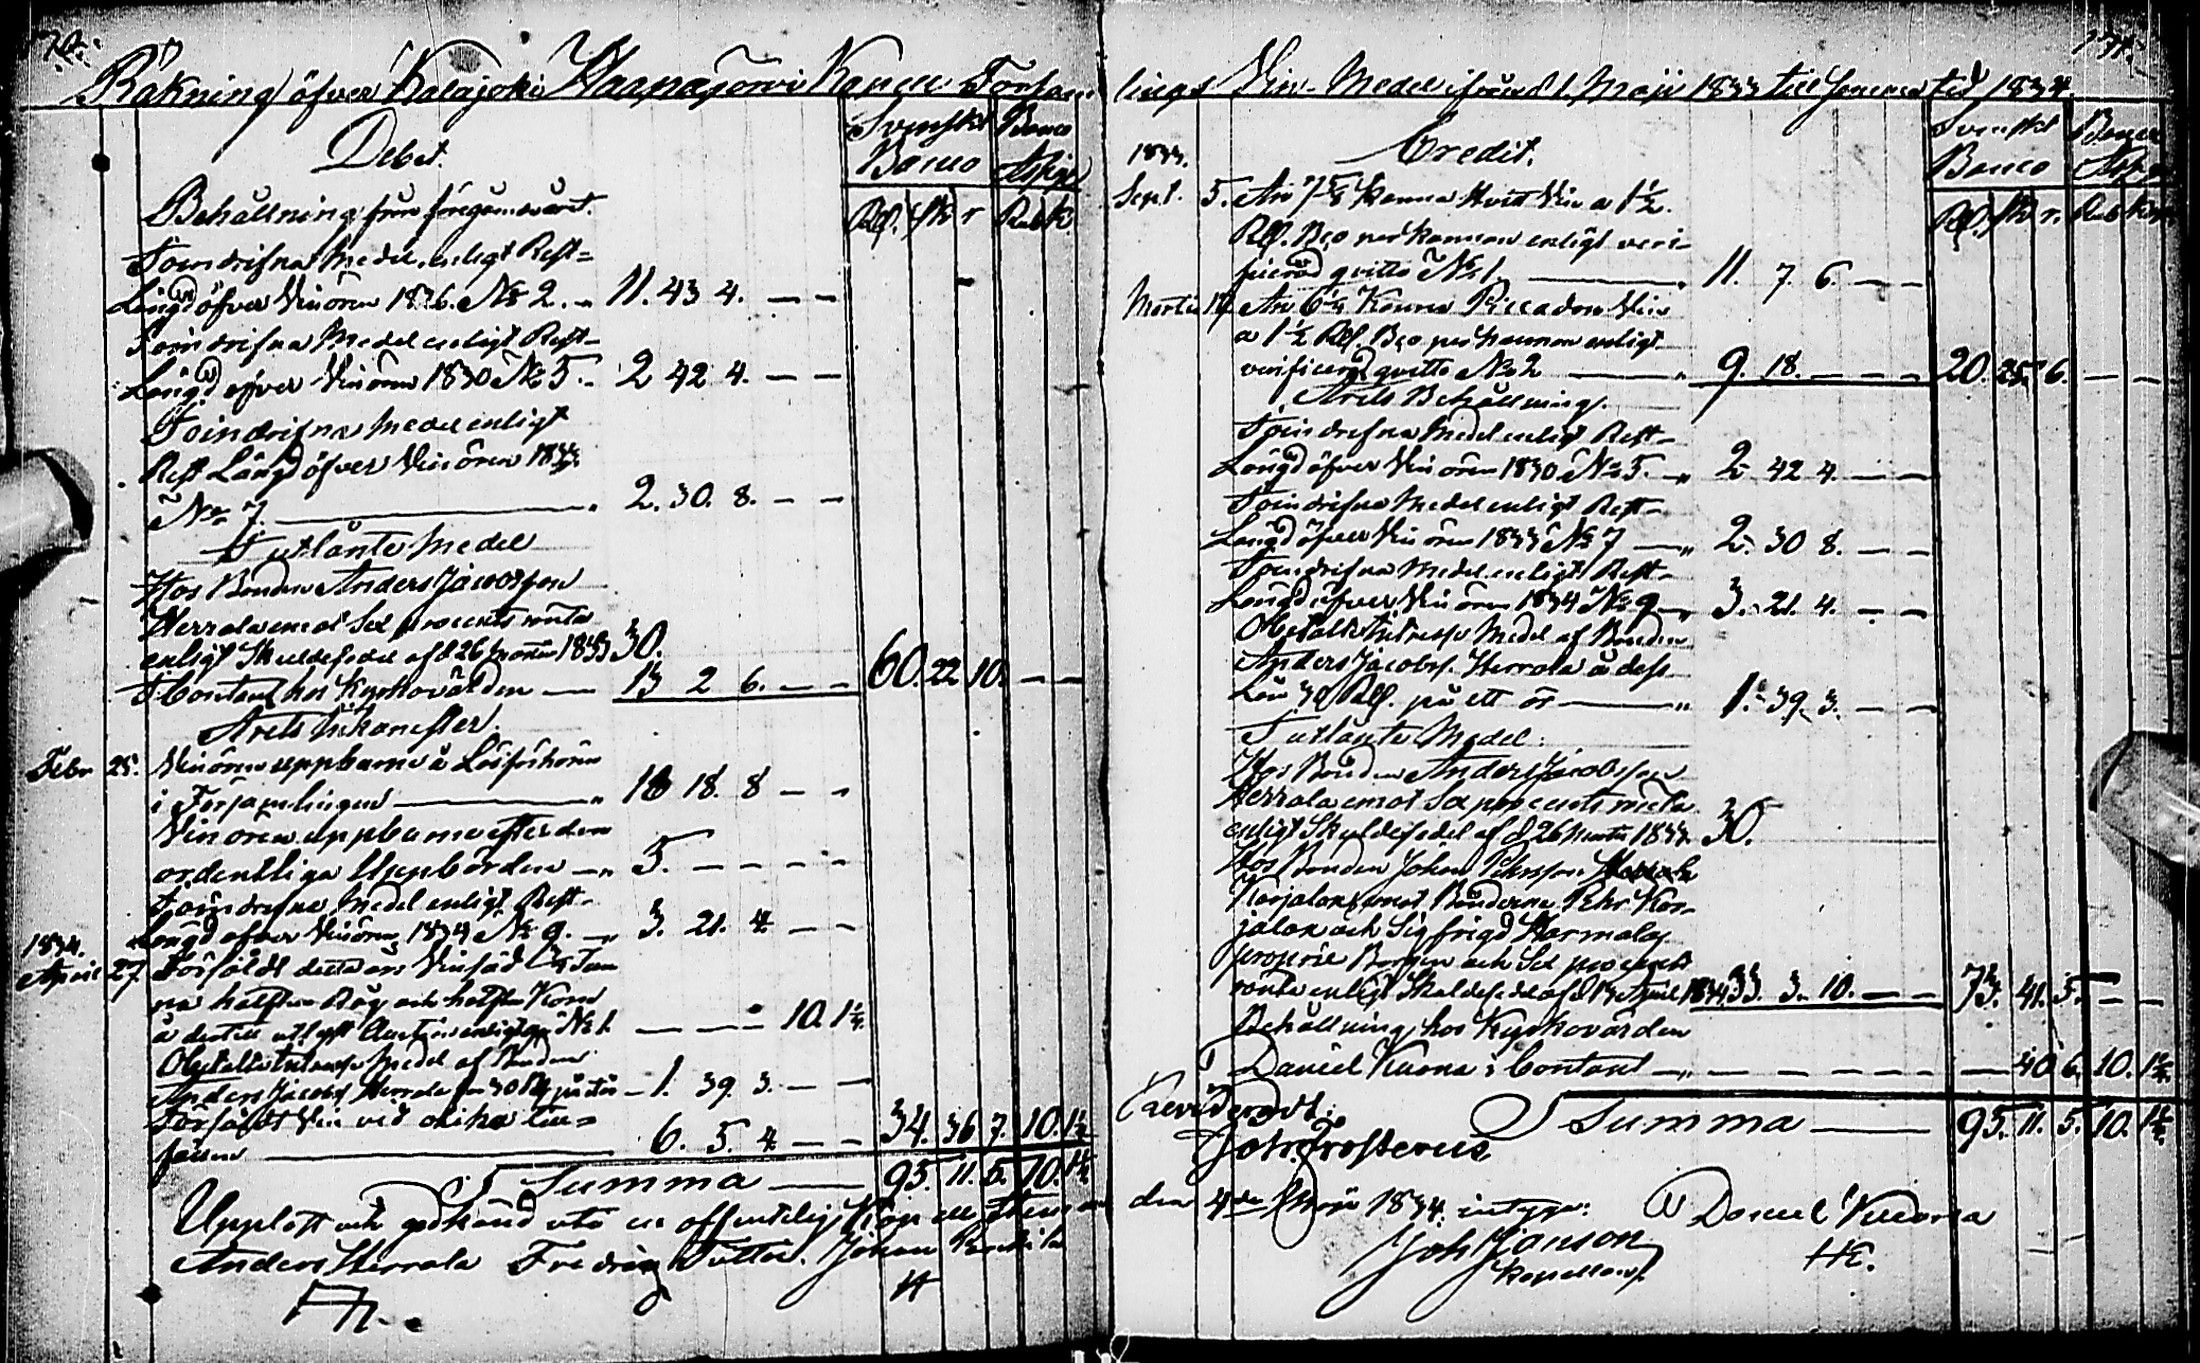 Räkning öfver Kalajoki Haapajärvi Capell Församlings Vin-Medel ifrån d. 1. Maji 1833 till samma tid 1834.
Debet.
Svenskt Banco
Banco Assign.
Rd. sk r
Rub. K.
Behållning från föregående året.
Oindrifna Medel enligt Rest-
Längd öfver Vinören 1826. No 2. 11. 43 4. — —
Oindrifna Medel enligt Rest-
Längd öfver Vinören 1830 No 5. 2 42 4. — —
Oindrifna Medel enligt
Rest Längd öfver Vinören 1833
No 7. 2. 30. 8. — —
Utlånte Medel
Hos Bonden Anders Jacobsson
Herrala emot Sex procents ränta
enligt Skuldsedel af d 26 Martii 1833 30.
Contant hos Kyrkovärden — 13 2 6. — — 60. 22 10. — —
Årets Inkomster.
Febr 25. Vinören uppburne å Läsförhören
i Församlingen 18 18. 8 — —
Vinören uppburne efter den
ordentliga Uppbörden — 5. — — — —
Oindrifna Medel enligt Rest-
Längd öfver Vinören 1834 No 9. 3. 21. 4 — —
1834.
April 27. Försåldt detta års Vinsäd
na hälften Råg och hälften Korn
å dertill utlyst Auction enligt No 1. — — — 10. 1
Obetalte Intresse Medel af Bonden
Anders Jacobs. Herrala för 30 Rd på ett år — 1. 39. 3. — —
Försåldt Vin vid olika till-
fällen 6. 5. 4 — — 34. 36 7. 10. 1
Summa — 95. 11. 5. 10. 1
Uppläst och godkänd uti en offentelig
Anders Herrala Fredric Tuttila. Johan
Credit.
Svenskt Banco
Banco Ass.
Rd. sk r. Rub. Kop
1833.
Sept. 5. An 7 Kanna Hvitt Vin a 1½
Rd. Bco per kannan enligt veri-
ficerad qvitto No 1. — 11. 7. 6. — —
Martii An 6 Kanna Piccadon Vin
a 1½ Rd. Bco per kannan enligt
verificerad qvitto No 2 — 9. 18. — — — 20. 25. 6. — —
Årets Behållning.
Oindrifna Medel enligt Rest-
Längd öfver Vinören 1830 No 5. — 2 42 4. — —
Oindrifna Medel enligt Rest-
Längd öfver Vinören 1833 No 7 — 2. 30 8. — —
Oindrifna Medel enligt Rest-
Längd öfver Vinören 1834 No 9 — 3. 21. 4. — —
Obetalte Intresse Medel af Bonden
Anders Jacobs. Herrala å dess
Lån 30 Rd. på ett år — 1. 39. 3. — —
Utlånte Medel.
Hos Bonden Anders Jacobsson
Herrala emot Sex procents ränta
enligt Skuldsedel af d 26 Martii 1833. 30.
Hos Bonden Johan Pehrsson
Karjalon emot Bönderne Pehr Kar-
jalon och Sigfrid Harmala
proprie Borgen och Sex procents
ränta enligt Skuldsedel af d 13 April 1834 33. 3. 10. — — 73. 41. 5. — —
Behållning hos Kyrkovärden
Daniel Kuona i Contant — — — — — 40 6. 10. 1
Revideradt:
Joh. Frosterus
Summa — 95. 11. 5. 10. 1
den 4de Maji 1834. intyga:
Joh Janson
Kapellan.
Daniel Kuona